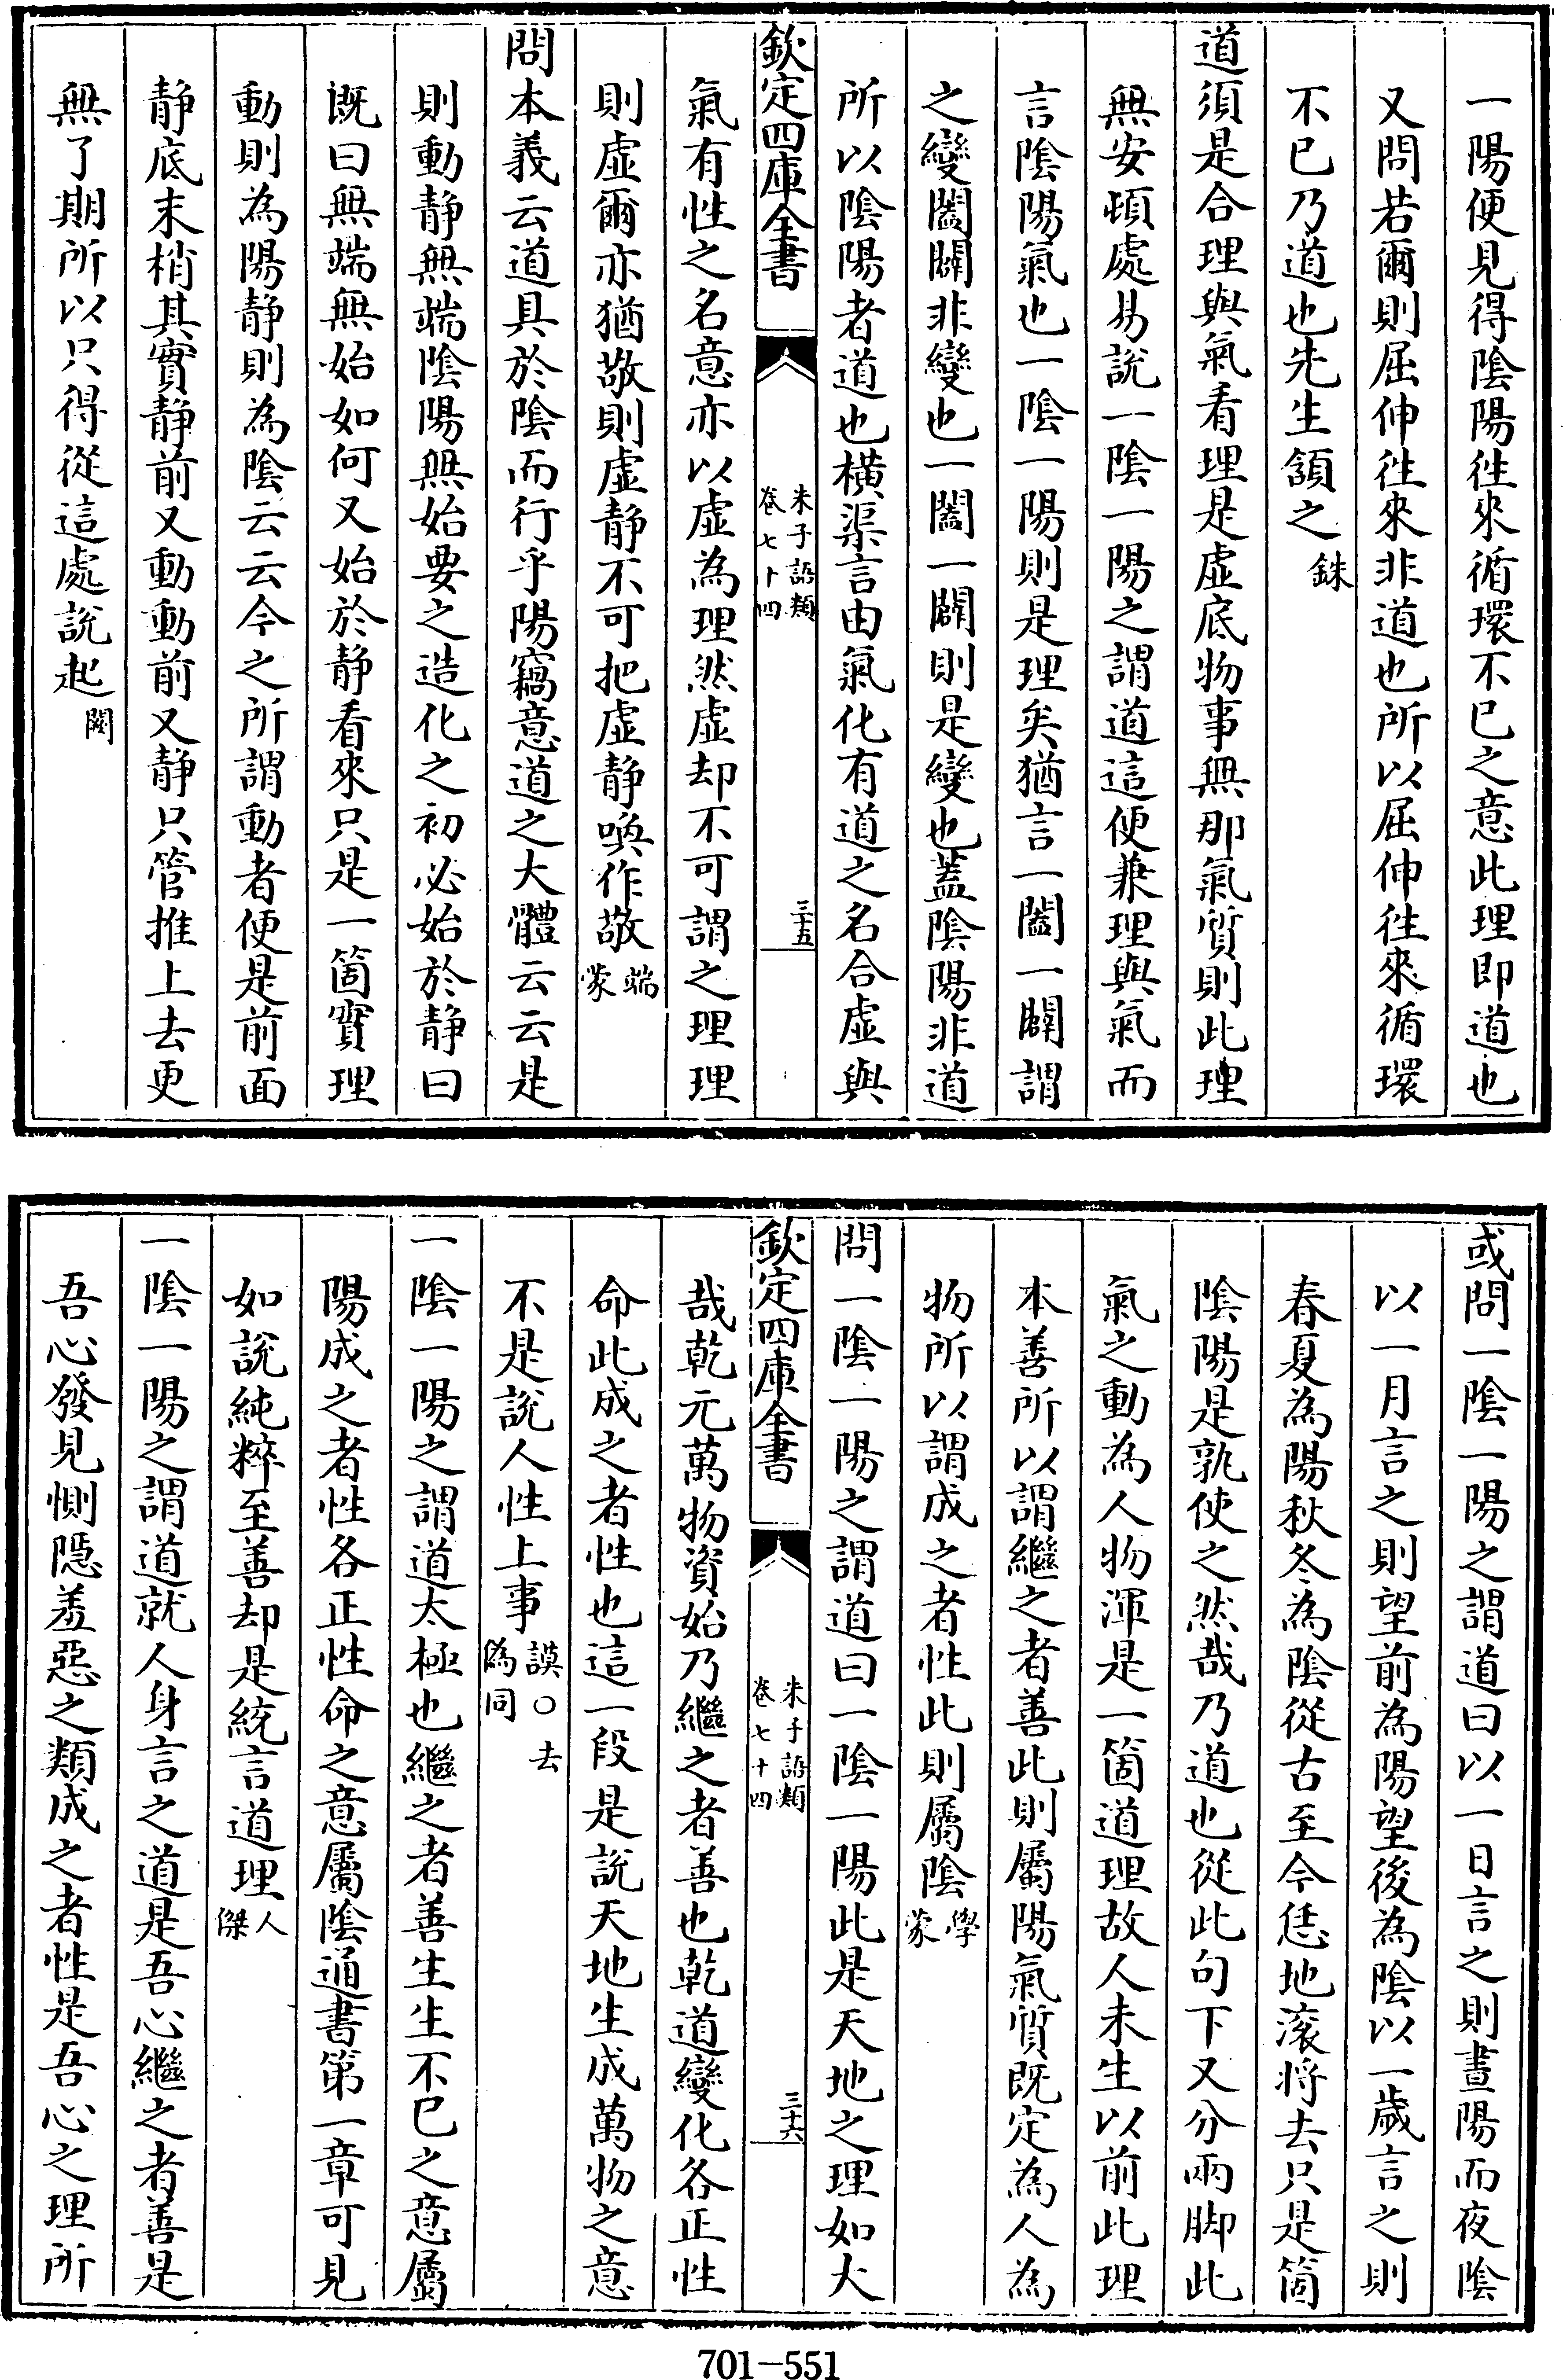 一陽便見得陰陽徃來循環不已之意此理即道也
又問若爾則屈伸徃來非道也所以屈伸徃來循環
不已乃道也先生頷之銖
道須是合理與氣看理是虛底物事無那氣質則此理
無安頓處易說一陰一陽之謂道這便兼理與氣而
言陰陽氣也一陰一陽則是理矣猶言一闔一闢謂
之變闔闢非變也一闔一闢則是變也蓋陰陽非道
所以陰陽者道也橫渠言由氣化有道之名合虛與
欽定四庫全書
朱子語類
卷七十四
三十五
氣有性之名意亦以虛為理然虛却不可謂之理理
則虛爾亦猶敬則虛静不可把虛静喚作敬端蒙
問本義云道具於陰而行乎陽竊意道之大體云云是
則動静無端陰陽無始要之造化之初必始於静曰
既曰無端無始如何又始於静看來只是一箇實理
動則為陽静則為陰云云今之所謂動者便是前面
静底末梢其實静前又動動前又静只管推上去更
無了期所以只得從這處說起闕
或問一陰一陽之謂道曰以一日言之則晝陽而夜陰
以一月言之則望前為陽望後為陰以一歲言之則
春夏為陽秋冬為陰從古至今恁地滾將去只是箇
陰陽是孰使之然哉乃道也從此句下又分兩脚此
氣之動為人物渾是一箇道理故人未生以前此理
本善所以謂繼之者善此則屬陽氣質既定為人為
物所以謂成之者性此則屬陰學蒙
問一陰一陽之謂道曰一陰一陽此是天地之理如大
欽定四庫全書
朱子語類
卷七十四
三十六
哉乾元萬物資始乃繼之者善也乾道變化各正性
命此成之者性也這一段是說天地生成萬物之意
不是說人性上事謨○去偽同
一陰一陽之謂道太極也繼之者善生生不已之意屬
陽成之者性各正性命之意屬陰通書第一章可見
如說純粹至善却是統言道理人傑
一陰一陽之謂道就人身言之道是吾心繼之者善是
吾心發見惻隠羞惡之類成之者性是吾心之理所
701-551